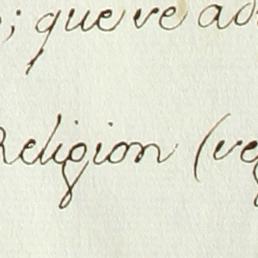 ; que ve ad
Religion (ve